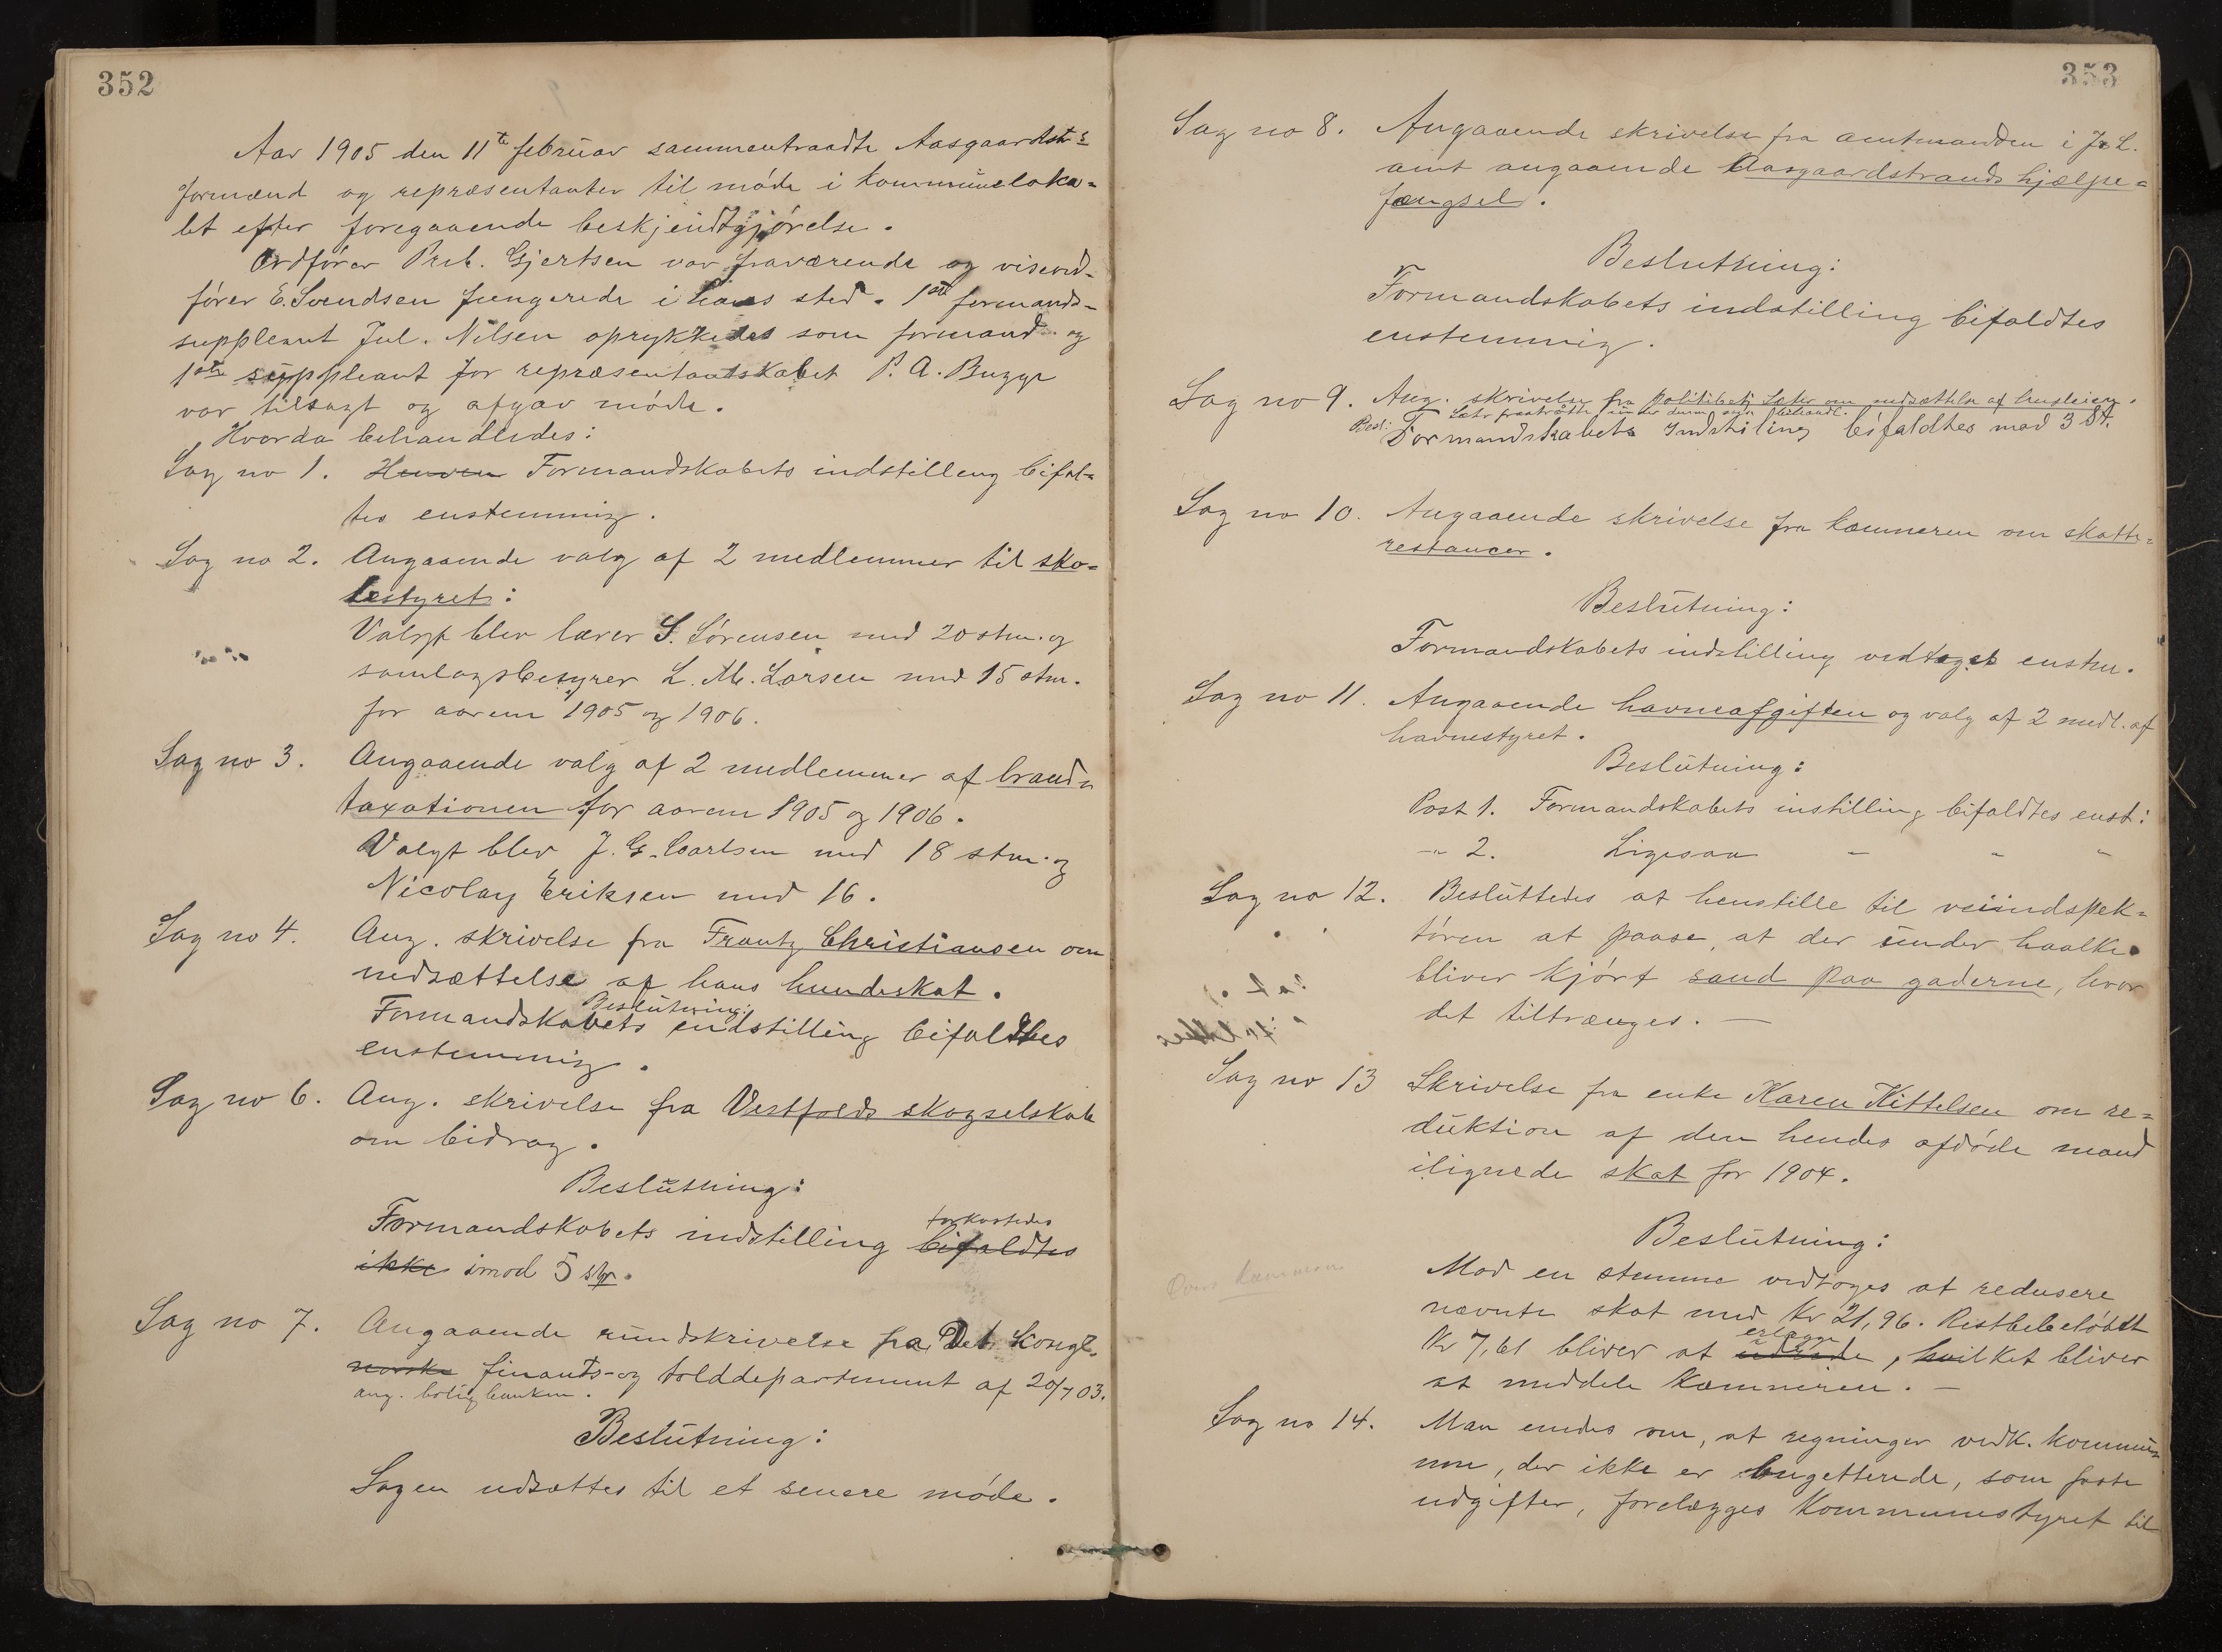 352
Aar 1905 den 11te februar sammentraadte Aasgaardstr.s
formænd og repræsentanter til møde i kommuneloka=
let efter foregaaende beskjendtgjørelse.
Ordfører Preb. Gjertsen var fraværende og viseord-
fører E. Svendsen fungerede i hans sted. 1ste formands-
suppleant Jul. Nilsen oprykkedes som formand og
1ste suppleant for repræsentantskabet P. A. Bugge
var tilsagt og afgav møde.
Hvorda behandledes:
Sag no 1. Formandskabets indstilling bifal=
tes enstemmig.
Sag no 2. Angaaende valg af 2 medlemmer til sko=
lestyret:
Valgt blev lærer S. Sørensen med 20 stm. og
samlagsbesyrer L. M. Larsen med 15 stm.
for aarene 1905 og 1906.
Sag no 3. Angaaende valg af 2 medlemmer af brand=
taxationen for aarene 1905 og 1906.
Valgt blev J. G. Carlsen med 18 stm. og
Nicolay Eriksen med 16.
Sag no 4. Ang. skrivelse fra Frantz Christiansen om
nedsættelse af hans hundeskat.
Beslutning:
Formandskabets indstilling bifaldtes
enstemmig.
Sag no 6. Ang. skrivelse fra Vestfolds skogselskab
om bidrag.
Beslutning:
forkastedes
Formandskabets indstilling bifaldtes
ikke imod 5 str.
Sag no 7. Angaaende rundskrivelse fra Det Kongl.
norske finants- og tolddepartement af 20/7 03.
ang. boligbanken.
Beslutning:
Sagen udsættes til et senere møde.
353
Sag no 8. Angaaende skrivelse fra amtmanden i J. & L.
amt angaaende Aasgaardstrands hjælpe=
fængsel.
Beslutning:
Formandskabets indstilling bifaldtes
enstemmig.
Sag no 9. Ang. skrivelse fra politibetj. Sæter om nedsættelse af husleien.
Sæter fratrådte under denne sags behandl.
Besl: Formandskabets Indstiling bifaldtes mod 3 St.
Sag no 10. Angaaende skrivelse fra kæmneren om skatte=
restancer.
Beslutning:
Formandskabets indstilling vedtaget enstm.
Sag no 11. Angaaende havneafgiften og valg af 2 medl. af
havnestyret.
Beslutning:
Post 1. Formandskabets instilling bifaldtes enst:
-"- 2. Ligesaa - " "
Sag no 12. Besluttedes at henstille til veiindspek=
tøren at paase, at der under haalke
bliver kjørt sand paa gaderne, hvor
det tiltrænges. —
Sag no 13 Skrivelse fra enke Karen Kittelsen om re=
duktion af den hendes afdøde mand
ilignede skat for 1904.
Beslutning:
Mod en stemme vedtoges at redusere
nævnte skat med Kr 21,96. Restbebeløbet
erlægge
Kr 7,61 bliver at udrede, hvilket bliver
at meddele Kæmneren. —
Sag no 14. Man enedes om, at regninger vedk. kommu=
nen, der ikke er bugetterede, som faste
udgifter, forelægges Kommunestyret til